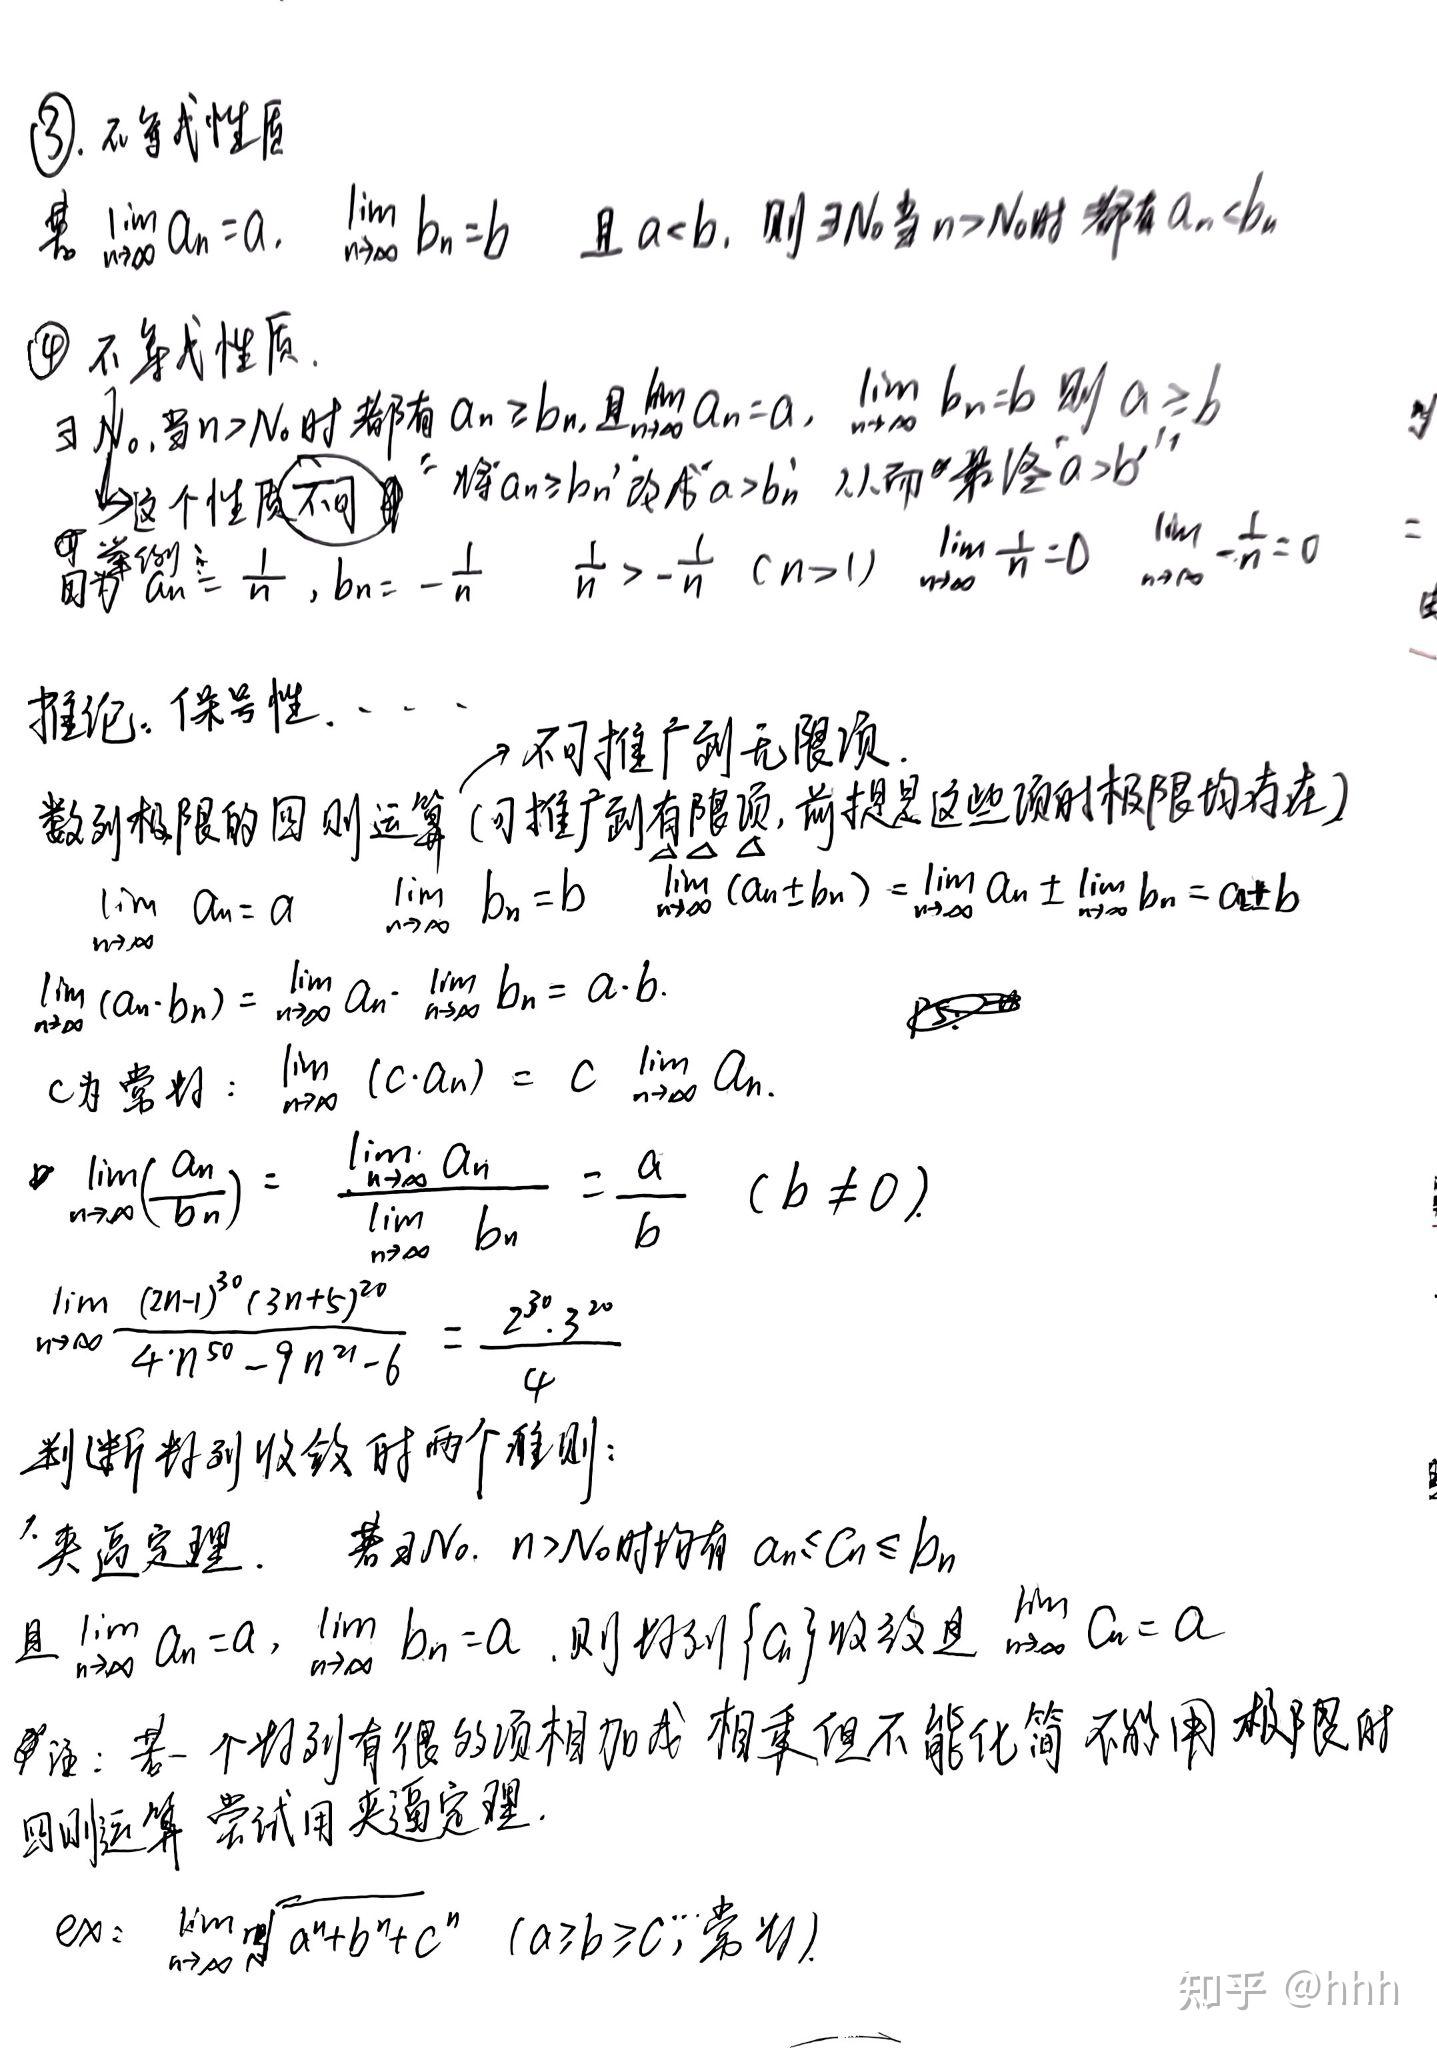 ③. 不等式性质
若 lim n→∞ an=a, lim n→∞ bn=b 且 a<b, 则∃N₀当n>N₀时 都有an<bn
④ 不等式性质.
∃N₀,当n>N₀时都有an≥bn,且lim n→∞ an=a, lim n→∞ bn=b 则 a≥b
→这个性质不可 "将"an≥bn"改成"a>bn" 从而"最终"a>b""
可举例:
因为 an=1/n, bn=-1/n 1/n>-1/n (n>1) lim n→∞ 1/n=0 lim n→∞ -1/n=0
推论. 保号性. · · ·
→不可推广到无限项.
数列极限的四则运算(可推广到有限项,前提是这些项的极限均存在)
lim n→∞ an=a lim n→∞ bn=b lim n→∞ (an±bn)=lim n→∞ an±lim n→∞ bn=a±b
lim n→∞ (an·bn)=lim n→∞ an·lim n→∞ bn=a·b.
c为常数: lim n→∞ (c·an)=c lim n→∞ an.
lim n→∞ (an/bn)=lim n→∞ an / lim n→∞ bn = a/b (b≠0).
lim n→∞ (2n-1)^30(3n+5)^20 / 4·n^50-9n^21-6 = 2^30·3^20 / 4
判断数列收敛的两个准则:
1. 夹逼定理. 若∃N₀. n>N₀时均有 an≤Cn≤bn
且 lim n→∞ an=a, lim n→∞ bn=a .则数列{Cn}收敛且 lim n→∞ Cn=a
注: 若一个数列有很多项相加或相乘但不能化简 不能用 极限的
四则运算 尝试用夹逼定理.
ex: lim n→∞ ⁿ√(aⁿ+bⁿ+cⁿ) (a≥b≥c,…常数).
知乎 @hhh